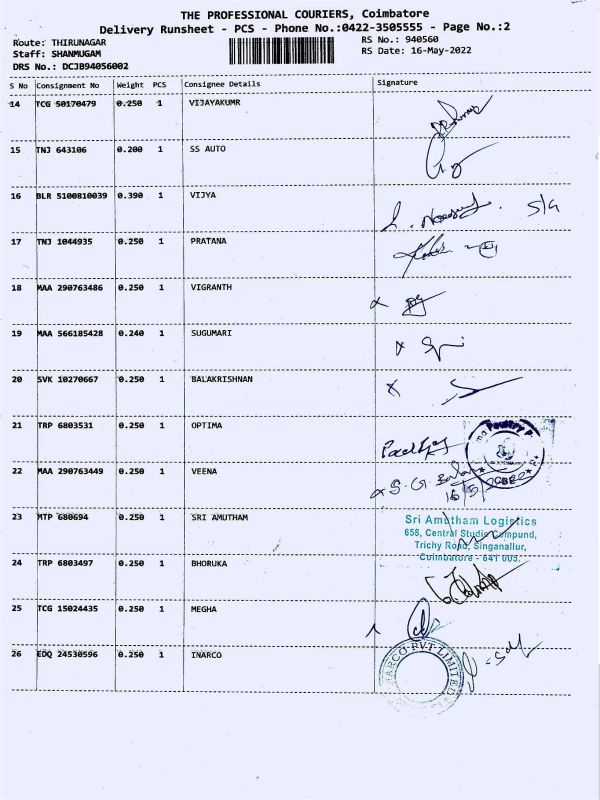 THE PROFESSIONAL COURIERS, Coimbatore
Delivery Runsheet - PCS - Phone No.:0422-3505555 - Page No.:2
Route: THIRUNAGAR RS No.: 940560
Staff: SHANMUGAM RS Date: 16-May-2022
DRS No.: DCJB94056002
S No Consignment No Weight PCS Consignee Details Signature
14 TCG 50170479 0.250 1 VIJAYAKUMR
15 TNJ 643106 0.200 1 SS AUTO
16 BLR 5100810039 0.390 1 VIJYA
17 TNJ 1044935 0.250 1 PRATANA
18 MAA 290763486 0.250 1 VIGRANTH
19 MAA 566185428 0.240 1 SUGUMARI
20 SVK 10270667 0.250 1 BALAKRISHNAN
21 TRP 6803531 0.250 1 OPTIMA
22 MAA 290763449 0.250 1 VEENA
23 MTP 680694 0.250 1 SRI AMUTHAM
Sri Amutham Logistics
658, Central Studio Compund,
Trichy Road, Singanallur,
Coimbatore - 641 005.
24 TRP 6803497 0.250 1 BHORUKA
25 TCG 15024435 0.250 1 MEGHA
26 EDQ 24530596 0.250 1 INARCO